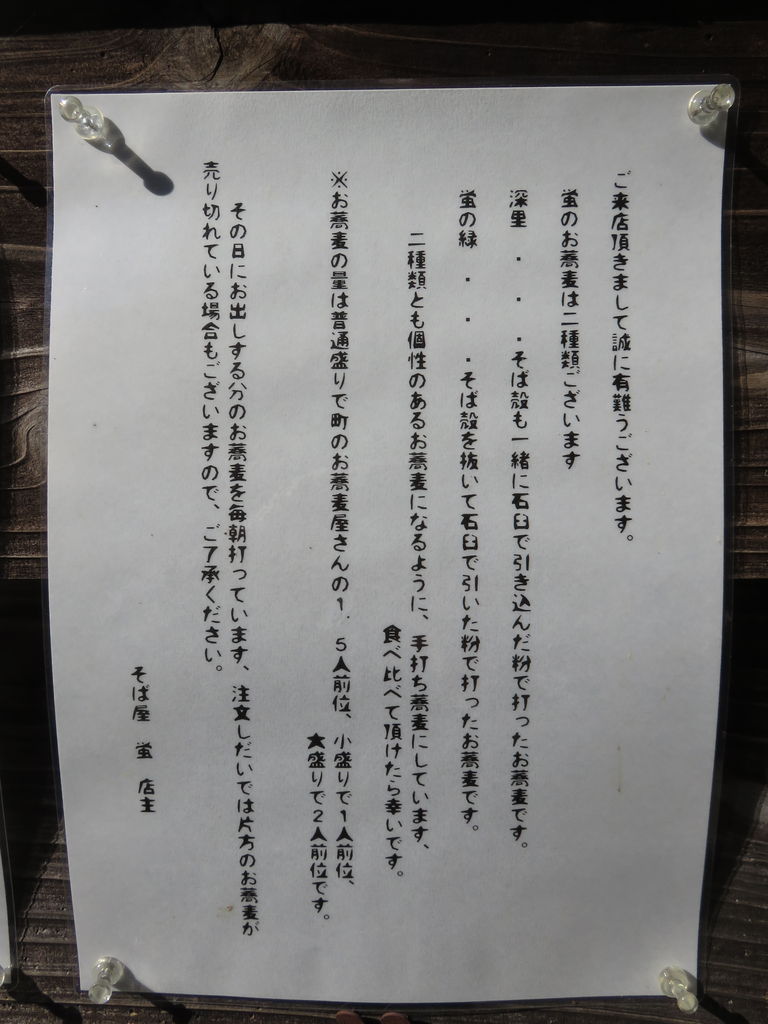 ご来店頂きまして誠に有難うございます。
蛍のお蕎麦は二種類ございます
深里 ・・・そば殻も一緒に石臼で引き込んだ粉で打ったお蕎麦です。
蛍の緑 ・・・そば殻を抜いて石臼で引いた粉で打ったお蕎麦です。
二種類とも個性のあるお蕎麦になるように、手打ち蕎麦にしています、
食べ比べて頂けたら幸いです。
※お蕎麦の量は普通盛りで町のお蕎麦屋さんの1.5人前位、小盛りで1人前位、
大盛りで2人前位です。
その日にお出しする分のお蕎麦を毎朝打っています、注文しだいでは片方のお蕎麦が
売り切れている場合もございますので、ご了承ください。
そば屋 蛍 店主